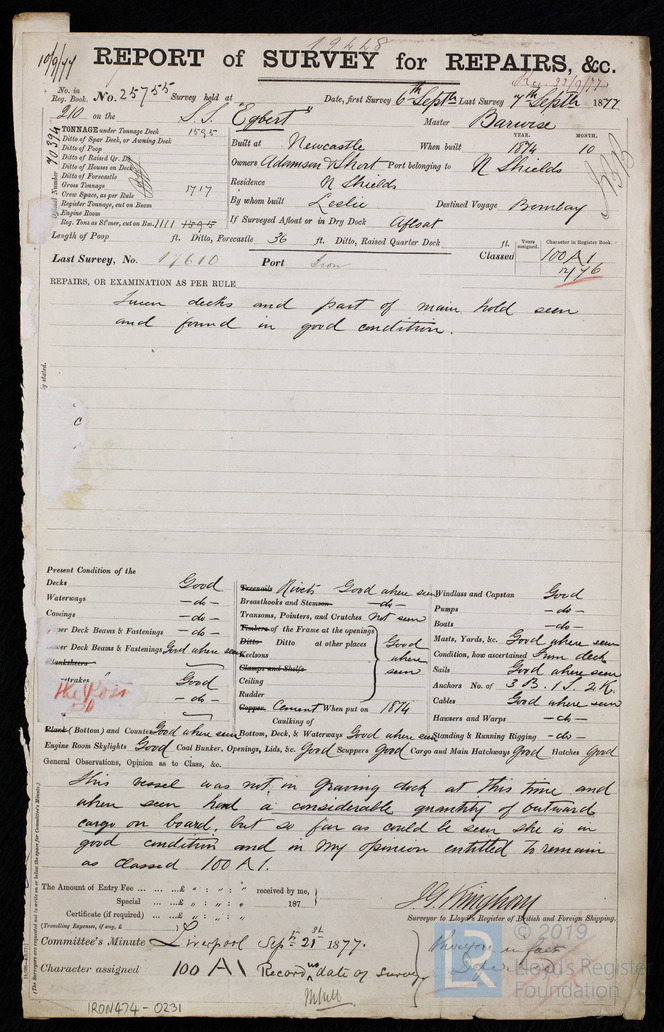 19448
10/9/77
REPORT of SURVEY for REPAIRS, &c.
Rec 22/9/77
No. in Reg. Book. No. 25755 Survey held at Date, first Survey 6th Septr Last Survey 7th Septr 1877
210 on the S.S. "Egbert" Master Barwise
TONNAGE under Tonnage Deck 1595
Ditto of Spar Deck, or Awning Deck
Ditto of Poop
Ditto of Raised Qr. Dk
Ditto of Houses on Deck
Ditto of Forecastle
Gross Tonnage 1717
Crew Space, as per Rule
Register Tonnage, cut on Beam
Engine Room
Reg. Tons as St'mer, cut on Bm. 1111 1595
Official Number
YEAR. MONTH.
Built at Newcastle When built 1874 10
Owners Adamson & Short Port belonging to N Shields
Residence N Shields
By whom built Leslie Destined Voyage Bombay
If Surveyed Afloat or in Dry Dock Afloat
Length of Poop ft. Ditto, Forecastle 36 ft. Ditto, Raised Quarter Deck ft.
Years assigned. Character in Register Book.
Last Survey, No. 17610 Port Iron Classed 100 A 1
12/76
REPAIRS, OR EXAMINATION AS PER RULE
Tween decks and part of main hold seen
and found in good condition.
Present Condition of the
Decks Good
Waterways — do —
Comings — do —
Upper Deck Beams & Fastenings — do —
Lower Deck Beams & Fastenings Good where seen
Planksheers
Good
— do —
Plank (Bottom) and Counter Good where seen
Treenails Rivets Good where seen
Breasthooks and Stemson — do —
Transoms, Pointers, and Crutches Not seen
Timbers of the Frame at the openings
Ditto Ditto at other places
Keelsons
Clamps and Shelfs
Ceiling
Rudder
Good where seen
Copper. Cement When put on 1874
Caulking of
Bottom, Deck, & Waterways Good where seen
Windlass and Capstan Good
Pumps — do —
Boats — do —
Masts, Yards, &c. Good where seen
Condition, how ascertained From deck
Sails Good where seen
Anchors No. of 3 B. 1 S. 2 K.
Cables Good where seen
Hawsers and Warps — do —
Standing & Running Rigging — do —
Engine Room Skylights Good Coal Bunker, Openings, Lids, &c. Good Scuppers Good Cargo and Main Hatchways Good Hatches Good
General Observations, Opinion as to Class, &c.
This vessel was not in graving dock at this time and
when seen had a considerable quantity of outward
cargo on board, but so far as could be seen she is in
good condition and in my opinion entitled to remain
as classed 100 A1.
The Amount of Entry Fee ... ... ...£ " : " : " received by me,
Special ... ...£ " : " : " 187
Certificate (if required) ... ...£ " : " : "
(Travelling Expenses, if any, £ )
Surveyor to Lloyd's Register of British and Foreign Shipping.
Committee's Minute Liverpool Sept. 21st 1877.
Character assigned 100 A1 Record no date of survey
(The Surveyors are requested not to write on or below the space for Committee's Minute.)
IRON474-0231
© 2019
LR
Lloyd's Register
Foundation